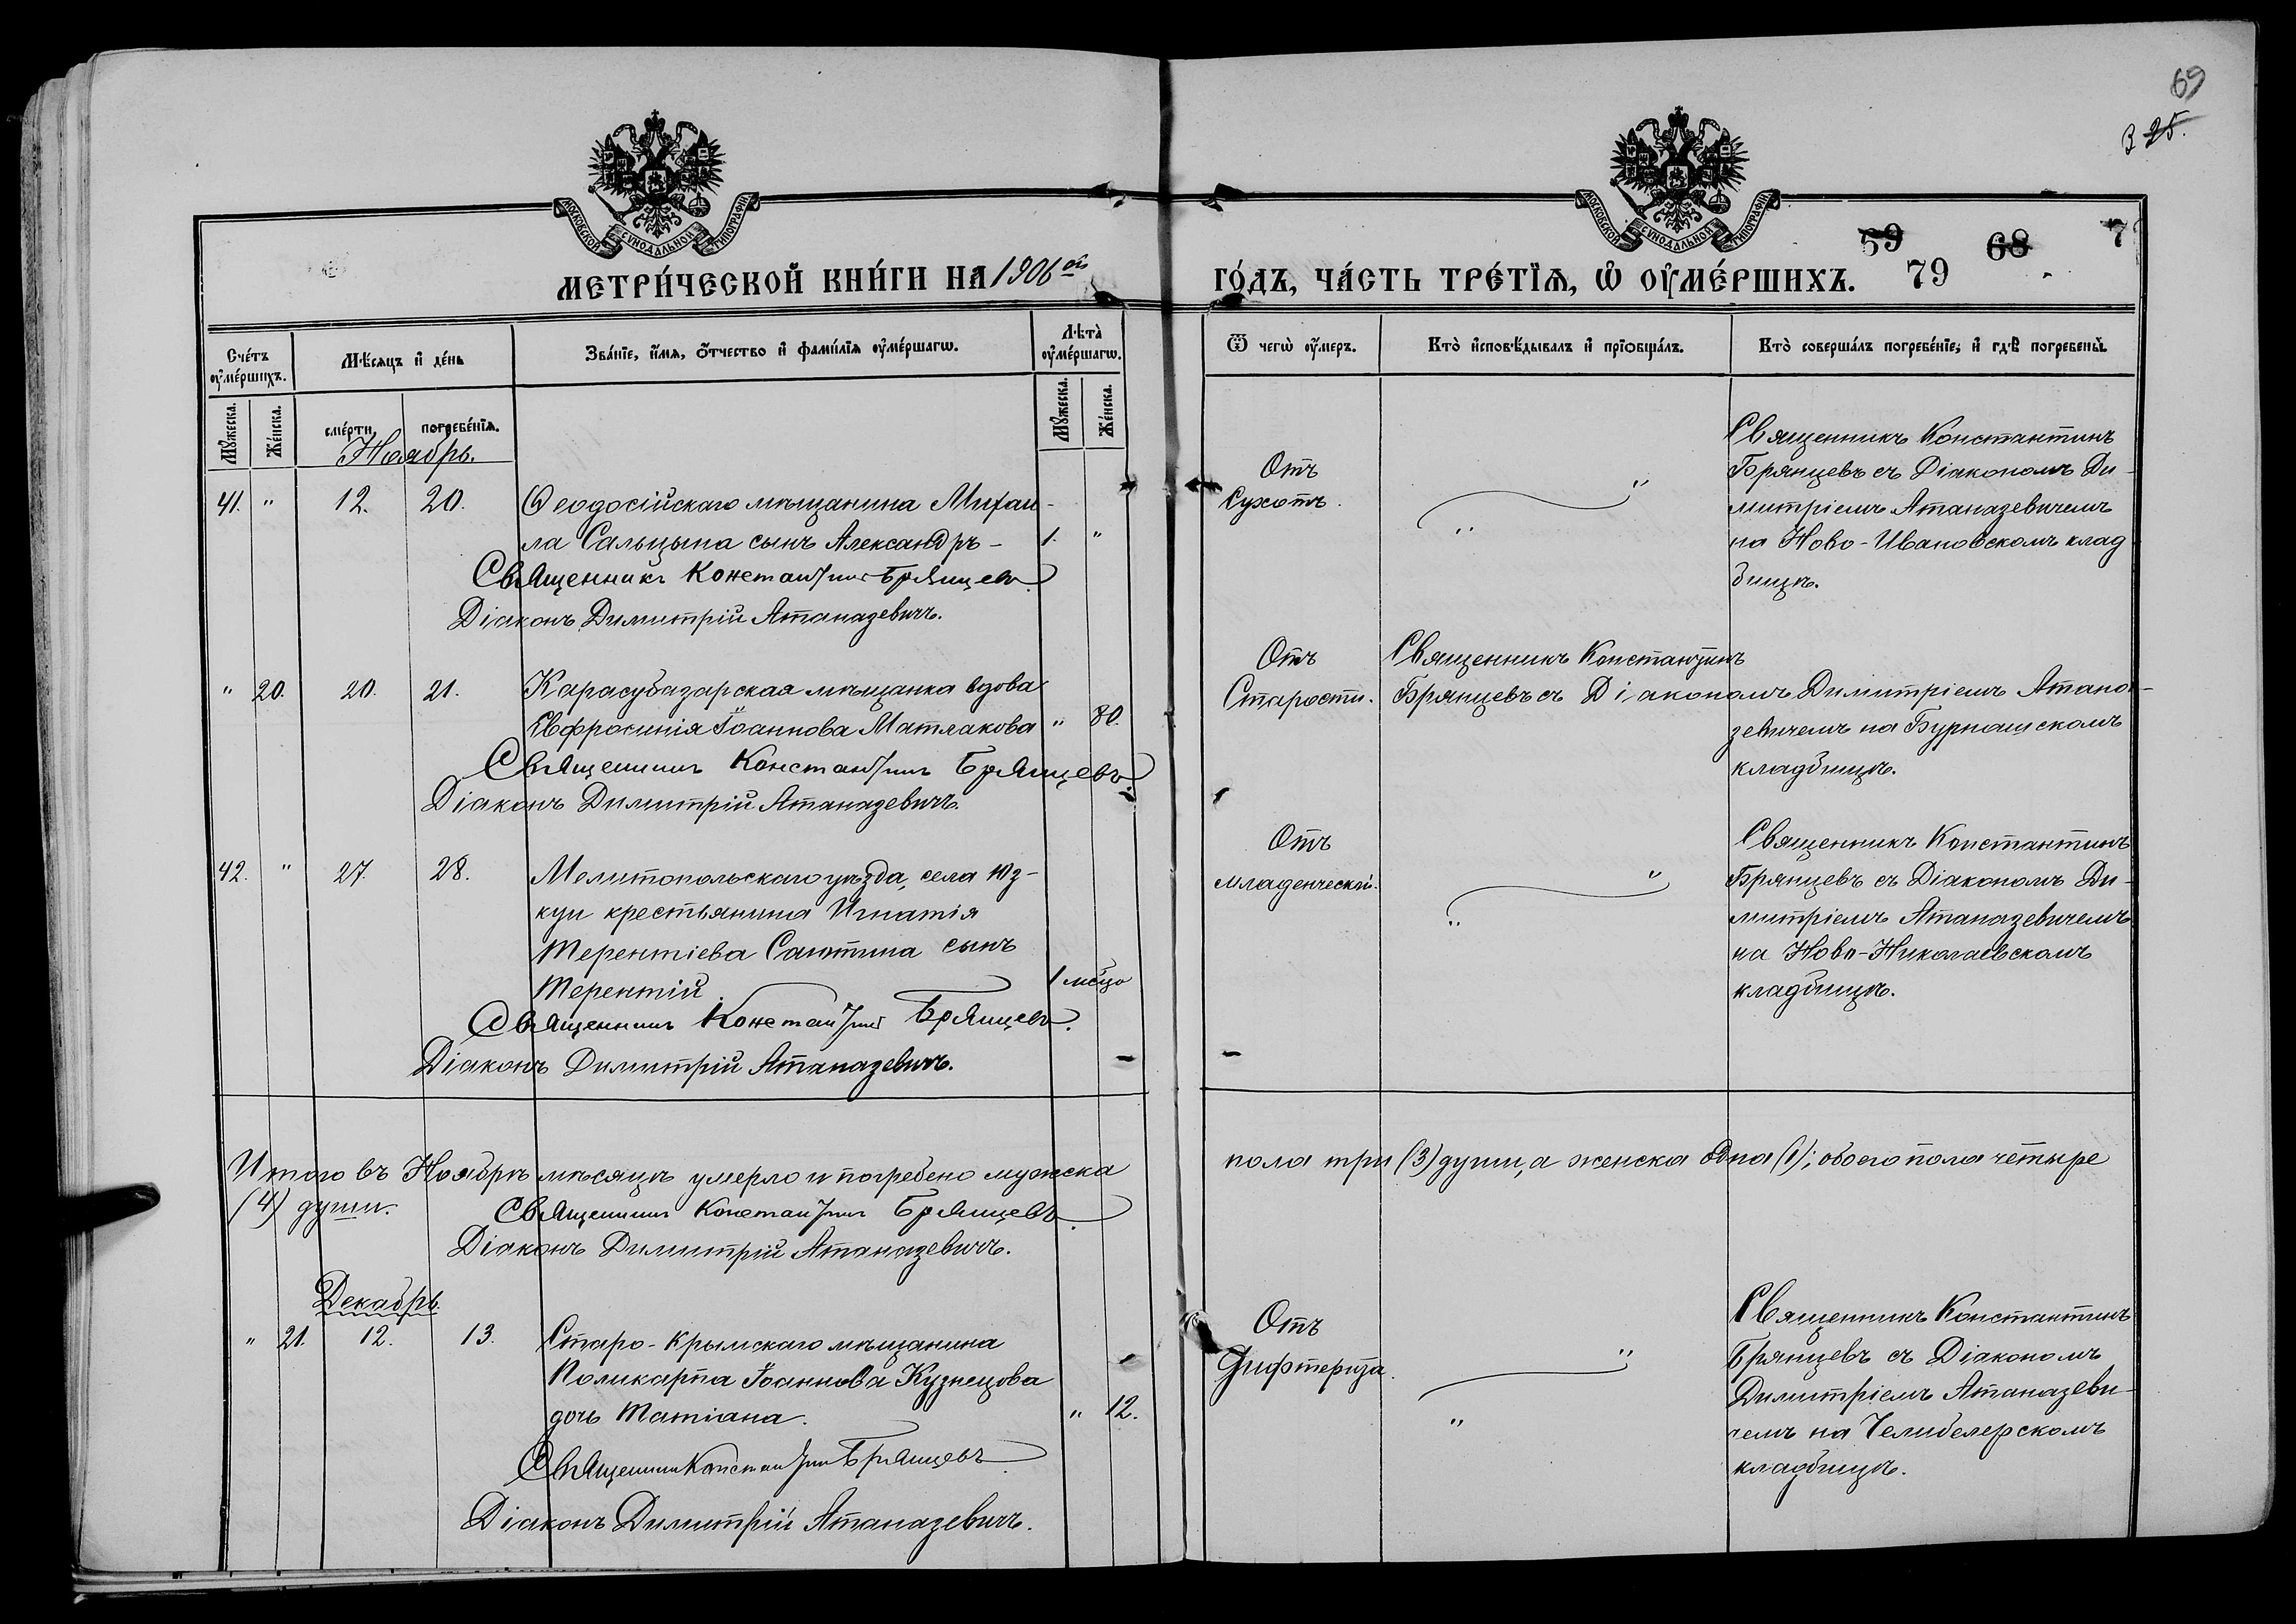 69
3 25.
МОСКОВСКОЙ СѴНОДАЛЬНОЙ ТИПОГРАФІИ
МОСКОВСКОЙ СѴНОДАЛЬНОЙ ТИПОГРАФІИ
59 68 7
79
МЕТРИ́ЧЕСКОЙ КНИ́ГИ НА 1906ой
ГО́ДЪ, ЧА́СТЬ ТРЕ́ТІѦ, Ѡ҆ ОУ҆МЕ́РШИХЪ.
Сче́тъ оу҆ме́ршихъ.
Мѣ́сѧцъ и҆ де́нь
Зва́нїе, и҆́мѧ, ѻ҆́тчество и҆ фами́лїѧ оу҆ме́ршагѡ.
Лѣта̀ оу҆ме́ршагѡ.
Ѿ чегѡ̀ оу҆́меръ.
Кто̀ и҆сповѣ́дывалъ и҆ прїѻбща́лъ.
Кто̀ соверша́лъ погребе́нїе; и҆ гдѣ̀ погребены̀.
Мꙋ́жеска.
Же́нска.
сме́рти,
погребе́нїѧ.
Мꙋ́жеска.
Же́нска.
Ноябрь.
41. " 12. 20. Ѳеодосійскаго мѣщанина Михаи-
ла Сальцына сынъ Александръ - 1. "
Священникъ Константинъ Брянцевъ.
Діаконъ Димитрій Атаназевичъ.
Отъ
Сухотъ.
" "
Священникъ Константинъ
Брянцевъ съ Діакономъ Ди-
митріемъ Атаназевичемъ
на Ново-Ивановскомъ клад
бищѣ.
" 20. 20. 21. Карасубазарская мѣщанка вдова
Евфросинія Іоаннова Матлакова " 80.
Священникъ Константинъ Брянцевъ.
Діаконъ Димитрій Атаназевичъ.
Отъ
Старости.
Священникъ Константинъ
Брянцевъ съ Діакономъ Димитріемъ Атана-
зевичемъ на Бурнашскомъ
кладбищѣ.
42. " 27. 28. Мелитопольскаго уѣзда, села Юз-
куи крестьянина Игнатія
Терентіева Саютина сынъ
Терентій 1 мѣсяц
Священникъ Константинъ Брянцевъ.
Діаконъ Димитрій Атаназевичъ.
Отъ
младенческой.
" "
Священникъ Константинъ
Брянцевъ съ Діакономъ Ди-
митріемъ Атаназевичемъ
на Ново-Николаевскомъ
кладбищѣ.
Итого въ Ноябрѣ мѣсяцѣ умерло и погребено мужска пола три (3) души, а женска одна (1); обоего пола четыре
(4) души.
Священникъ Константинъ Брянцевъ.
Діаконъ Димитрій Атаназевичъ.
Декабрь.
" 21. 12. 13. Старо-Крымскаго мѣщанина
Поликарпа Іоаннова Кузнецова
дочь Татіана. " 12.
Священникъ Константинъ Брянцевъ.
Діаконъ Димитрій Атаназевичъ.
Отъ
Дифтерита.
" "
Священникъ Константинъ
Брянцевъ съ Діакономъ
Димитріемъ Атаназеви-
чемъ на Челибелерскомъ
кладбищѣ.